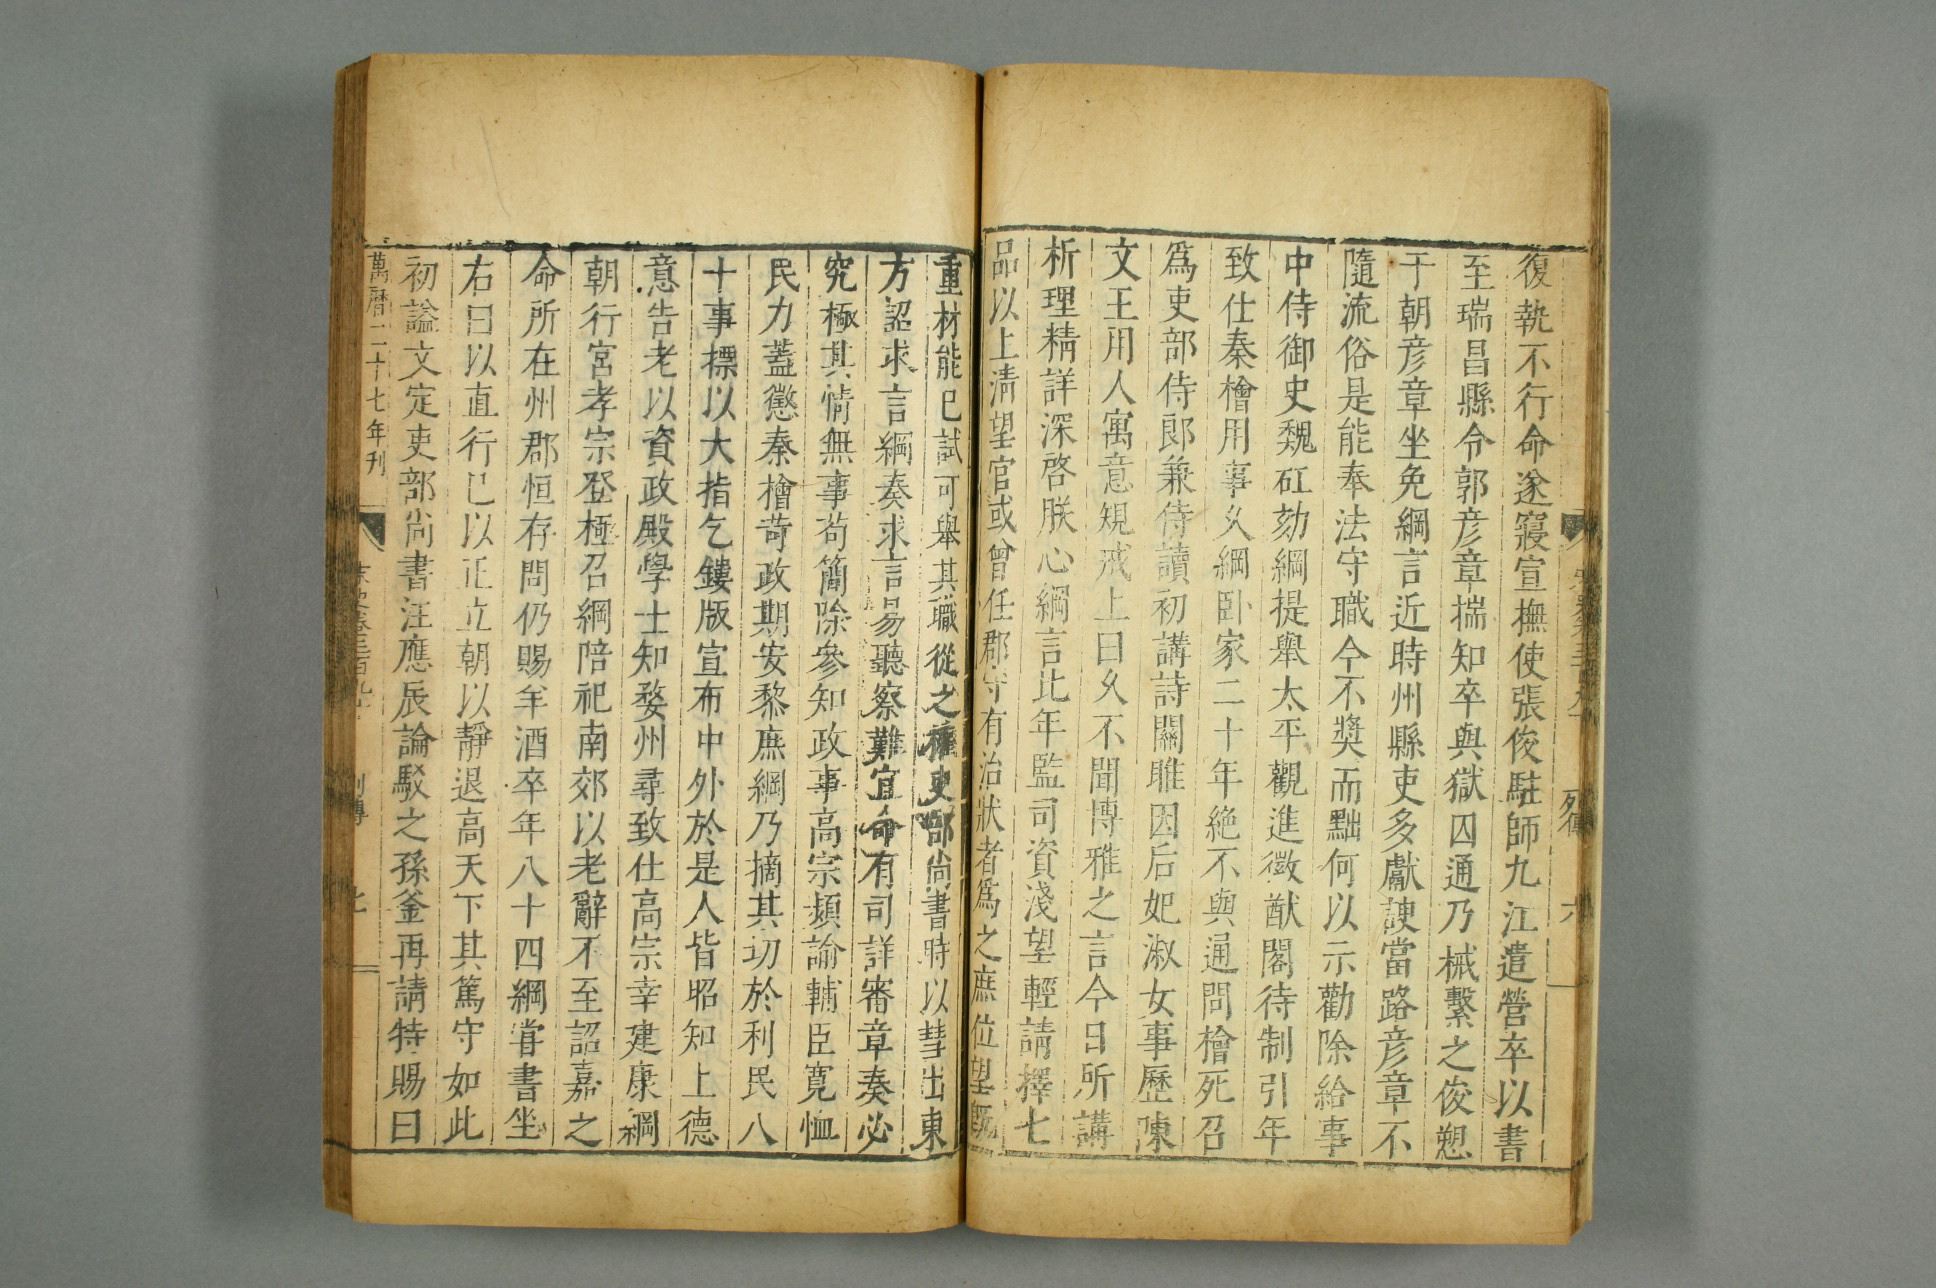 復執不行命遂寢宣撫使張俊駐師九江遣營卒以書
至瑞昌縣令郭彦章揣知卒與獄囚通乃械繫之俊愬
于朝彦章坐免綱言近時州縣吏多獻諛當路彦章不
隨流俗是能奉法守職今不奬而黜何以示勸除給事
中侍御史魏矼劾綱提舉太平觀進徽猷閣待制引年
致仕秦檜用事乆綱卧家二十年絶不與通問檜死召
爲吏部侍郎兼侍讀初講詩關雎因后妃淑女事歷陳
文王用人寓意規戒上曰乆不聞博雅之言今日所講
析理精詳深啓朕心綱言比年監司資淺望輕請擇七
品以上清望官或曾任郡守有治狀者爲之庶位望旣
重材能已試可舉其職從之權吏部尚書時以彗出東
方詔求言綱奏求言易聽察難宜命有司詳審章奏必
究極其情無事苟簡除參知政事高宗頻諭輔臣寛恤
民力蓋懲秦檜苛政期安黎庶綱乃摘其切於利民八
十事標以大指乞鏤版宣布中外於是人皆昭知上德
意告老以資政殿學士知婺州尋致仕高宗幸建康綱
朝行宮孝宗登極召綱陪祀南郊以老辭不至詔嘉之
命所在州郡恒存問仍賜羊酒卒年八十四綱嘗書坐
右曰以直行已以正立朝以靜退高天下其篤守如此
初謚文定吏部尚書汪應辰論駁之孫釜再請特賜曰
萬曆二十七年刊
列傳
七